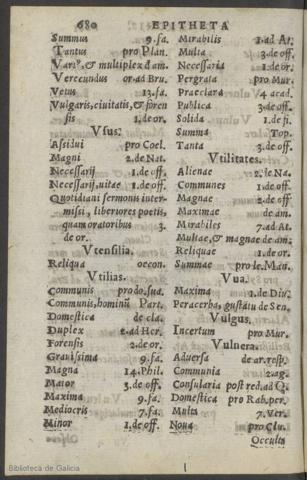 680 EPITHETA
Summus 9.fa.
Tantus pro Plan.
Vari9, & multiplex d am.
Verecundus or.ad Bru.
Vetus 13.fa.
Vulgaris, ciuitatis, & foren
sis 1.de or.
Vsus.
Assidui pro Coel.
Magni 2.de Nat.
Necessarij 1.de off.
Necessarij, uitae 1.de off.
Quotidiani sermonis inter-
missi, liberiores poetis,
quam oratoribus 3.
de or.
Vtensilia.
Reliqua oecon.
Vtilias.
Communis pro do, sua.
Communis, hominũ Part.
Domestica de cla.
Duplex 2.ad Her.
Forensis 2.de or.
Grauissima 9.fa.
Magna 14.Phil.
Maior 3.de off.
Maxima 9.fa.
Mediocris 7.fa.
Minor 1.de off.
Mirabilis 1.ad Ar.
Multa 3.de off.
Necessaria 1.de or.
Pergrata pro Mur.
Praeclara 4 acad.
Publica 3.de off.
Solida 1.de fi.
Summa Top.
Tanta 3.de off.
Vtilitates.
Alienae 2.de Na.
Communes 1.de off.
Magnae 2.de off.
Maximae de am.
Mirabiles 7.ad At.
Multae, & magnae de am;
Reliquae 1.de or.
Summae pro le. Man.
Vua.
Maxima 1.de Diu.
Peracerba, gustatu de Sen.
Vulgus.
Incertum pro Mur.
Vulnera.
Aduersa de ar. resp.
Communia 2.ag.
Consularia post red. ad Q.
Domestica pro Rab. per.
Multa 7.Ver.
Noua pro Clu.
Occulta
Biblioteca de Galicia